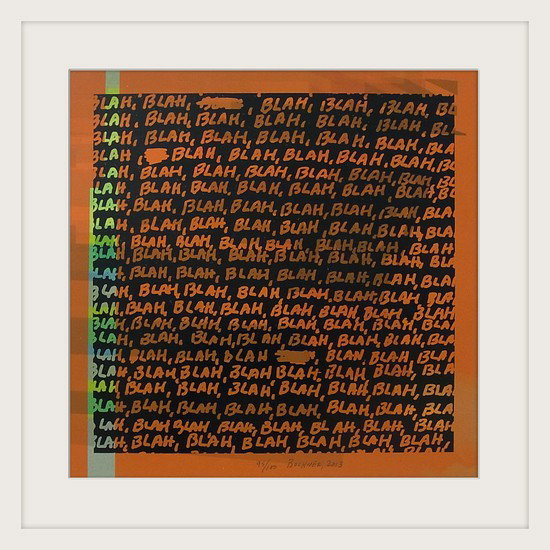 BLAH, BLAH, BLAH, BLAH, BLAH, B
BLAH, BLAH, BLAH, BLAH, BLAH, B
BLAH, BLAH, BLAH, BLAH, BLAH, BLA
BLAH, BLAH, BLAH, BLAH, BLAH, BLA
BLAH, BLAH, BLAH, BLAH, BLAH, BLAH, BL
BLAH, BLAH, BLAH, BLAH, BLAH, BLAH, BL
BLAH, BLAH, BLAH, BLAH, BLAH, BLAH, BLA
BLAH, BLAH, BLAH, BLAH, BLAH, BLAH, BLA
BLAH, BLAH, BLAH, BLAH, BLAH, BLAH, BLA
BLAH, BLAH, BLAH, BLAH, BLAH, BLAH, BLAH, BLA
BLAH, BLAH, BLAH, BLAH, BLAH, BLAH, BLAH, BLA
BLAH, BLAH, BLAH, BLAH, BLAH, BLAH, BLAH, BLA
BLAH, BLAH, BLAH, BLAH, BLAH, BLAH, BLAH, BLAH
BLAH, BLAH, BLAH, BLAH, BLAH, BLAH, BLAH, BLAH
BLAH, BLAH, BLAH, BLAH, BLAH, BLAH, BLAH, BLA
BLAH, BLAH, BLAH, BLAH, BLAH, BLAH, BLA
BLAH, BLAH, BLAH, BLAH, BLAH, BLAH, BLAH, BLA
BLAH, BLAH, BLAH, BLAH, BLAH, BLAH, BLAH, BLA
BLAH, BLAH, BLAH, BLAH, BLAH, BLAH, BLAH, BLA
BLAH, BLAH, BLAH, BLAH, BLAH, BLAH, BLAH, BLA
BLAH, BLAH, BLAH, BLAH, BLAH, BLAH, BLAH,
BOCHNER 2013